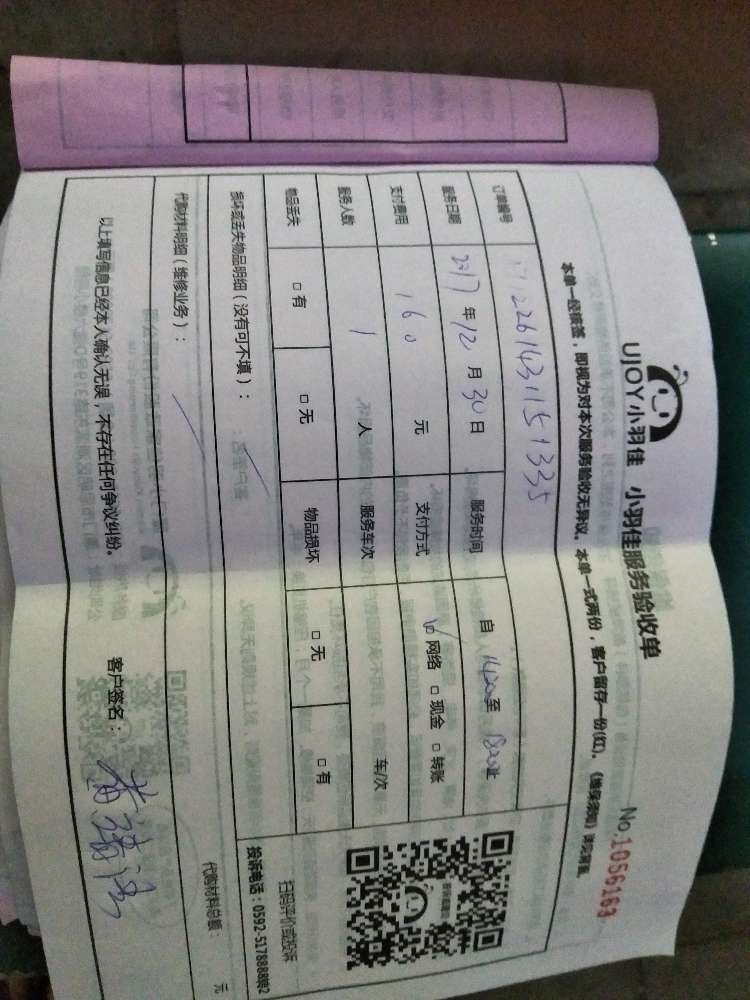 UJOY小羽佳 小羽佳服务验收单 No.1056163
本单一经核签，即视为对本次服务验收无异议。本单一式两份，客户留存一份(红)。《维保须知》详见背面。
订单编号 1712261431151335
服务日期 2017年12月30日 服务时间 自 1420至 1820止
支付费用 160 元 支付方式 ☑网络 □现金 □转账
服务人数 1 人 服务车次 车/次
物品丢失 □有 □无 物品损坏 □无 □有
损坏或丢失物品明细（没有可不填）：
扫码评价或投诉
投诉电话：0592-5178888转2
代购材料明细（维修业务）： 代购材料总额： 元
以上填写信息已经本人确认无误，不存在任何争议纠纷。 客户签名：